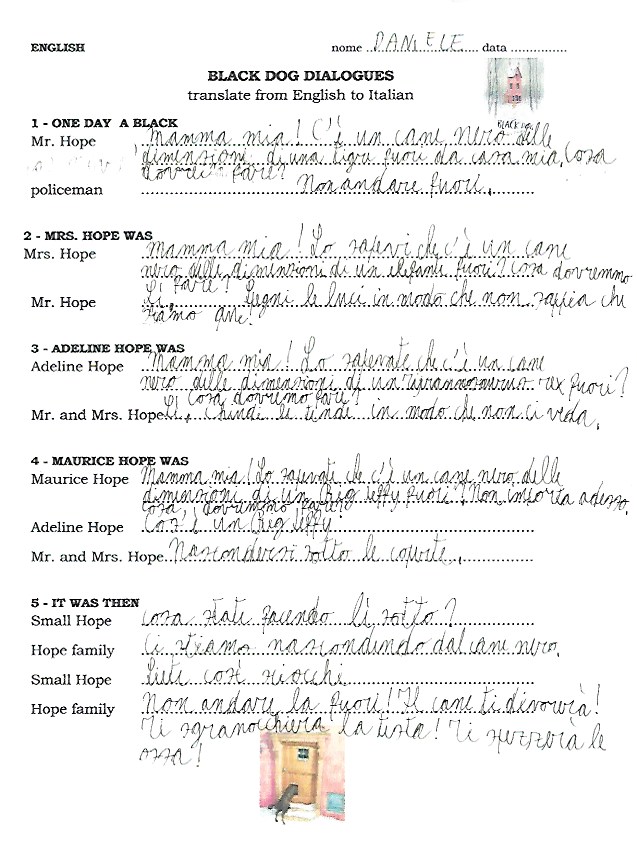 ENGLISH nome DANIELE data ..............
BLACK DOG DIALOGUES
translate from English to Italian
BLACK DOG
1 - ONE DAY A BLACK
Mr. Hope Mamma mia! C'è un cane nero delle
dimensioni di una tigre fuori da casa mia. Cosa
dovrei fare?
policeman Non andare fuori.
2 - MRS. HOPE WAS
Mrs. Hope Mamma mia! Lo sapevi che c'è un cane
nero delle dimensioni di un elefante fuori? Cosa dovremmo
fare?
Mr. Hope Sì, Spegni le luci in modo che non sappia che
siamo qui!
3 - ADELINE HOPE WAS
Adeline Hope Mamma mia! Lo sapevate che c'è un cane
nero delle dimensioni di un Tyrannosaurus rex fuori?
Cosa dovremo fare?
Mr. and Mrs. Hope Sì, Chiudi le tende in modo che non ci veda.
4 - MAURICE HOPE WAS
Maurice Hope Mamma mia! Lo sapevate che c'è un cane nero delle
dimensioni di un Big Jeffy fuori? Non importa adesso,
cosa dovremmo fare?
Adeline Hope Cos'è un Big Jeffy!
Mr. and Mrs. Hope Nascondersi sotto le coperte.
5 - IT WAS THEN
Small Hope cosa state facendo lì sotto?
Hope family Ci stiamo nascondendo dal cane nero.
Small Hope Siete così sciocchi
Hope family Non andare la fuori! Il cane ti divorerà!
Ti sgranocchierà la testa! Ti spezzerà le
ossa!